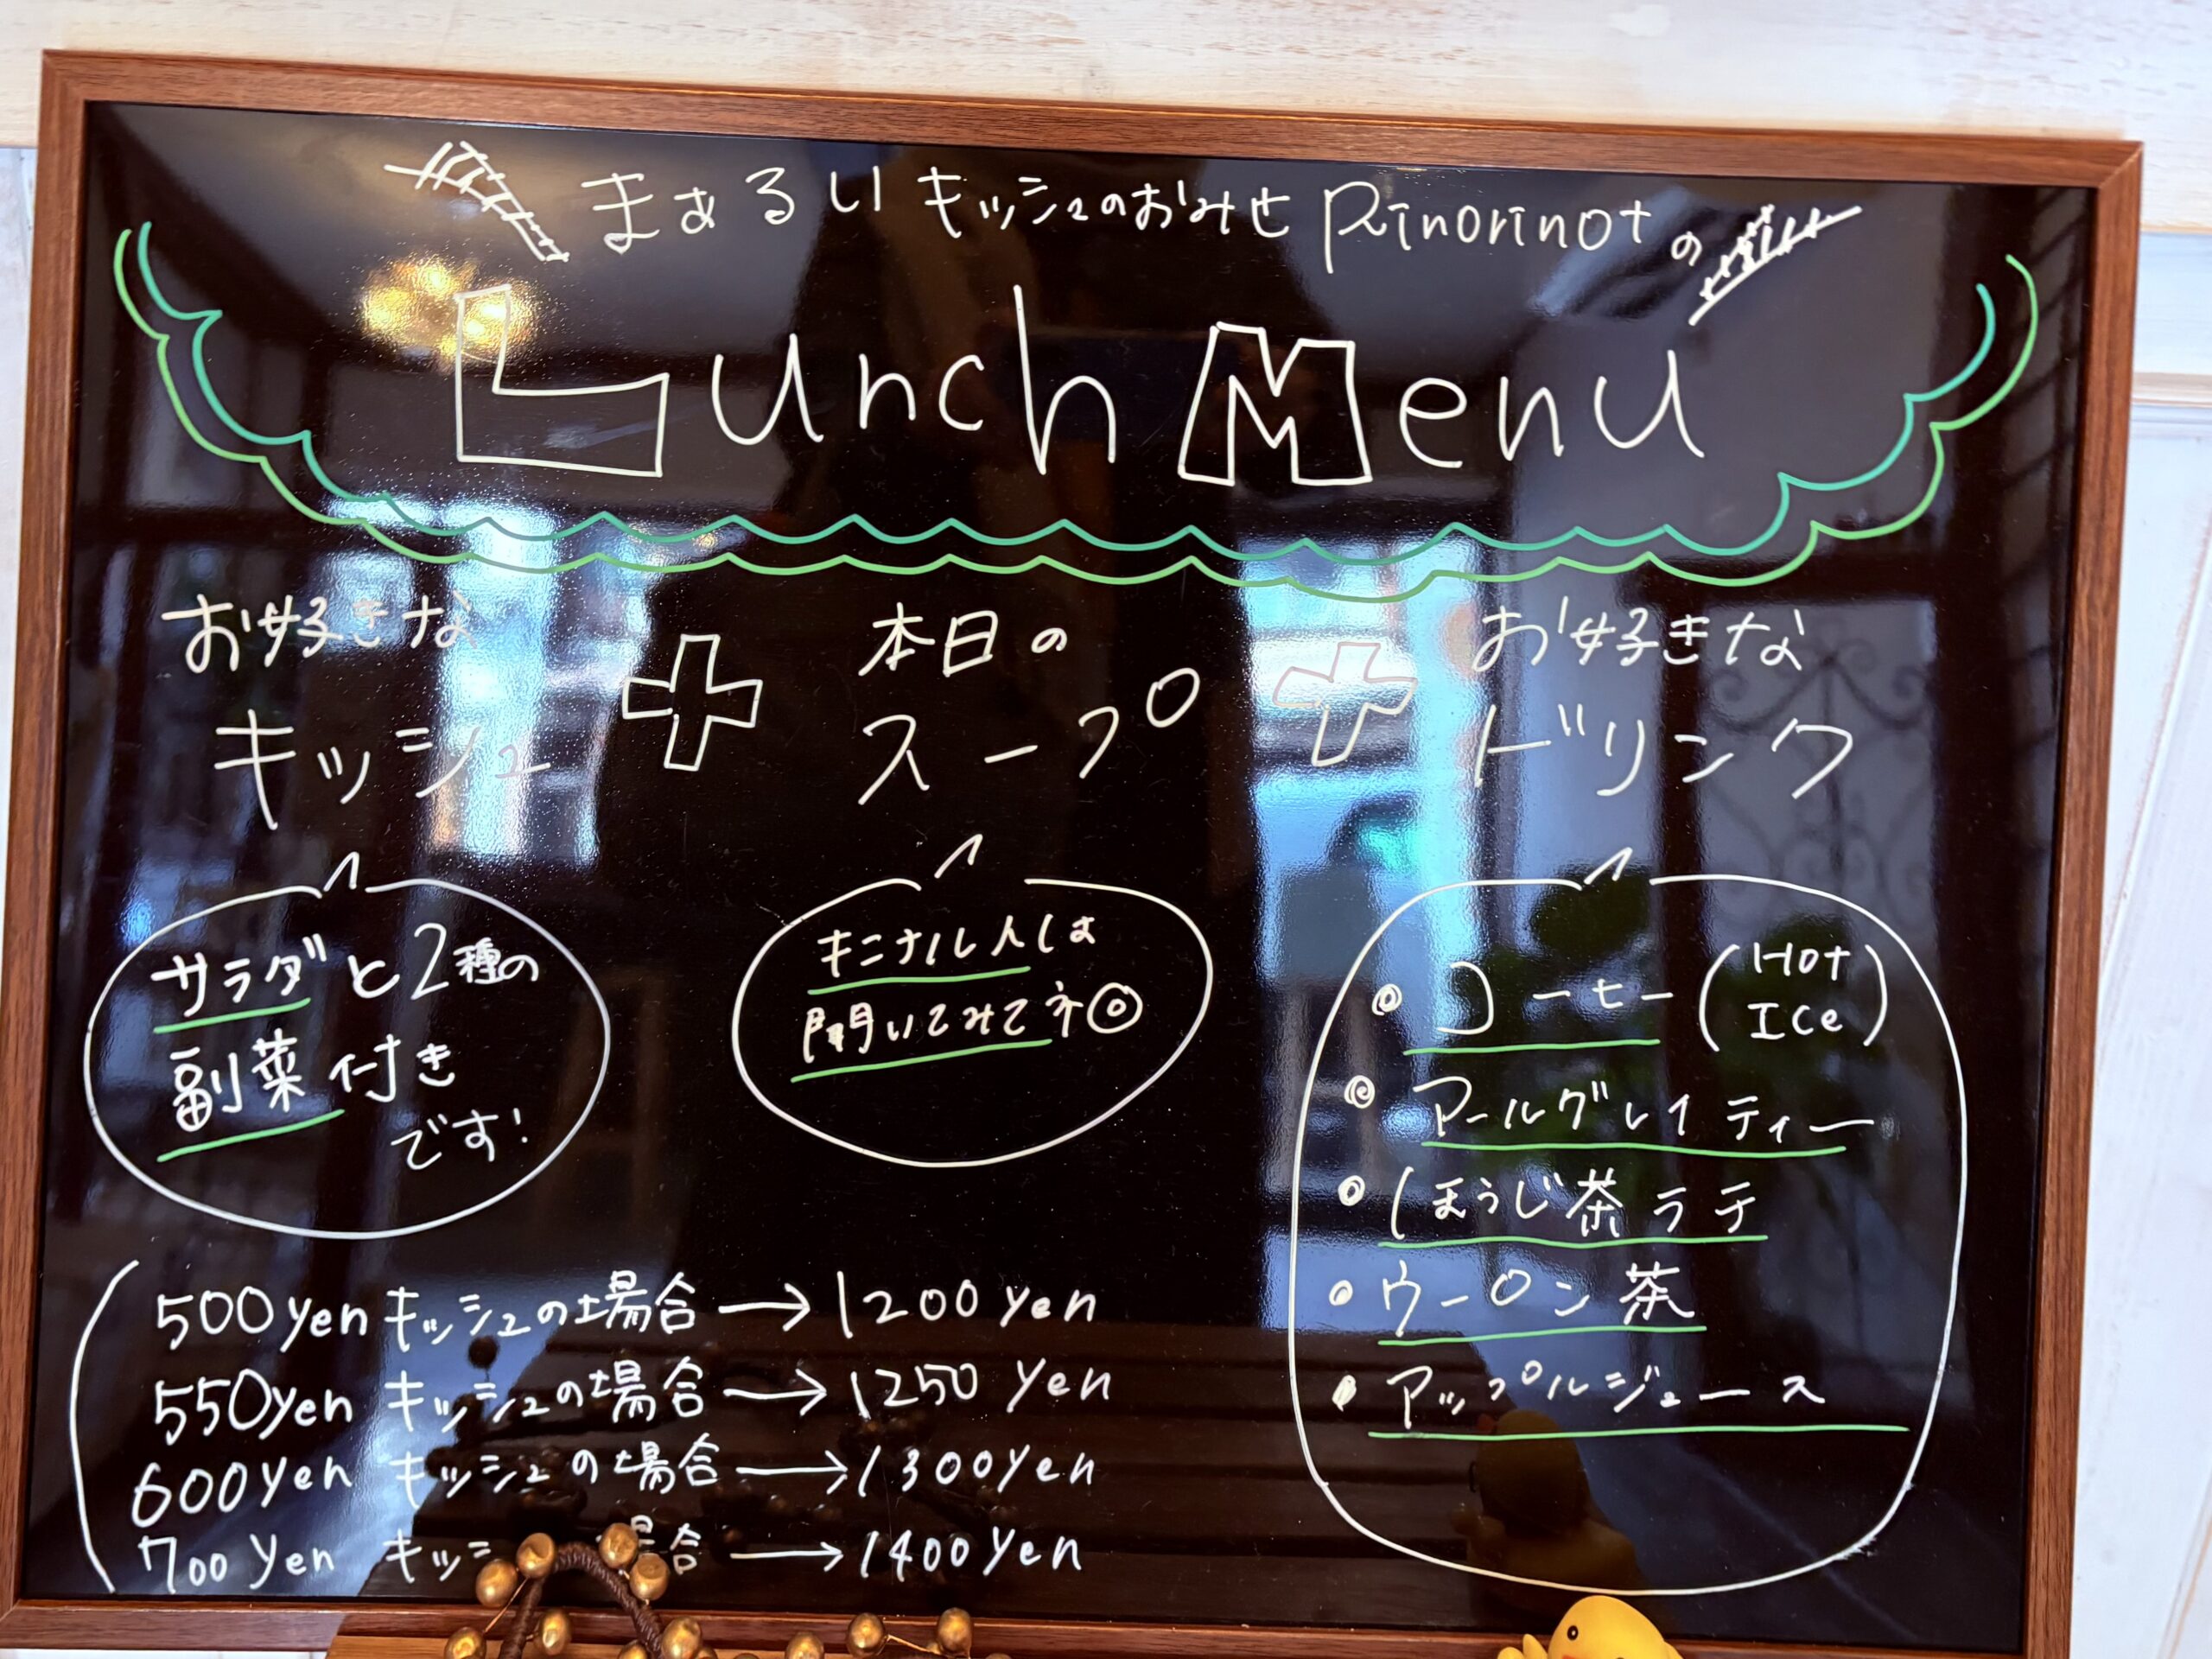 まぁるいキッシュのおみせ Rinorinotの
Lunch Menu
お好きな
キッシュ
+
本日の
スープ
+
お好きな
ドリンク
サラダと2種の
副菜付き
です!
キニナル人は
開いてみてネ◎
コーヒー (Hot
Ice)
アールグレイティー
ほうじ茶ラテ
ウーロン茶
アップルジュース
500yen キッシュの場合→1200yen
550yen キッシュの場合→1250yen
600yen キッシュの場合→1300yen
700yen キッシ 場合→1400yen